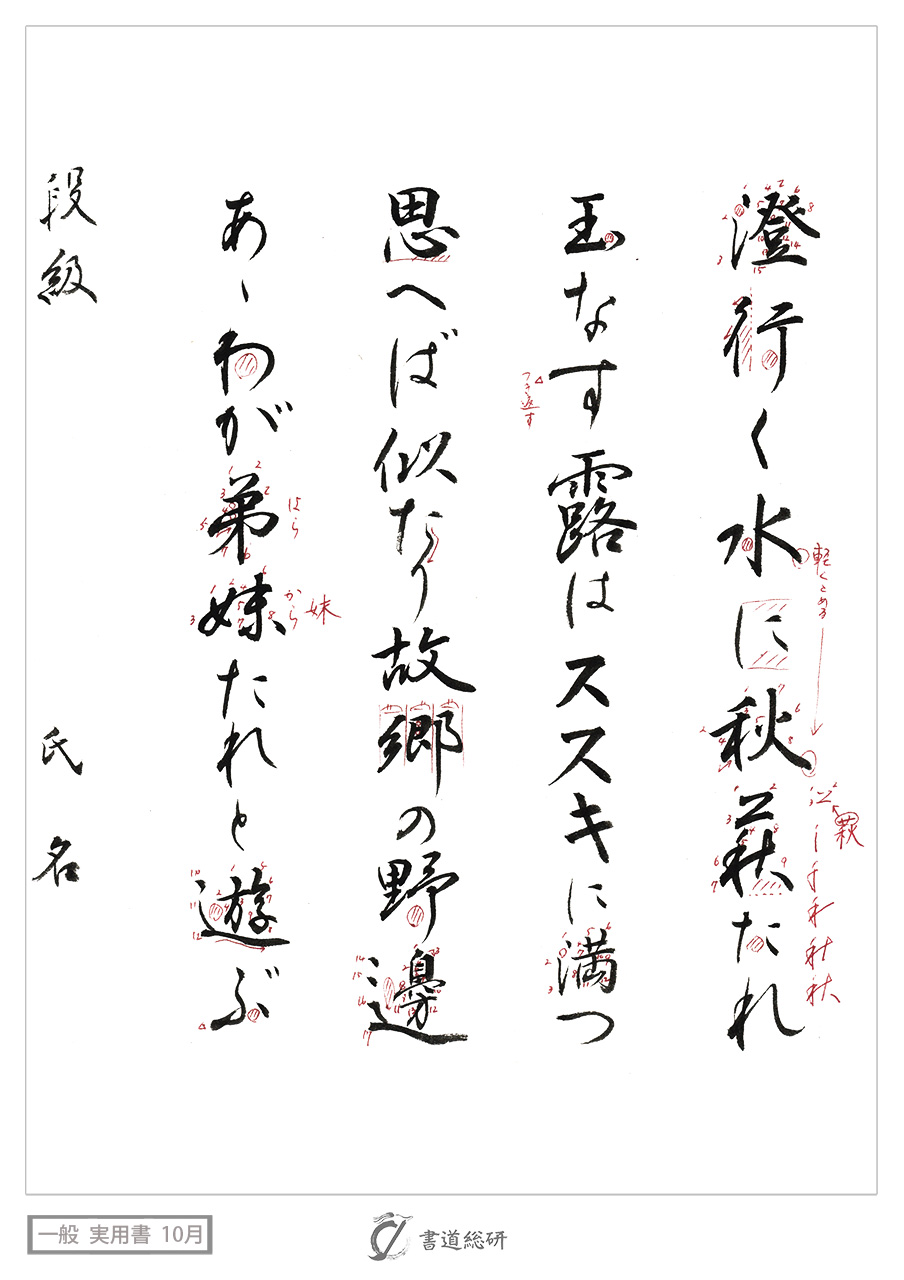 澄行く水に秋萩たれ
玉なす露はススキに満つ
思へば似たり故郷の野邊
あゝわが弟妹たれと遊ぶ
段級 氏名
軽くとめる
萩
つき返す
はら
から
妹
一般 実用書 10月
書道総研